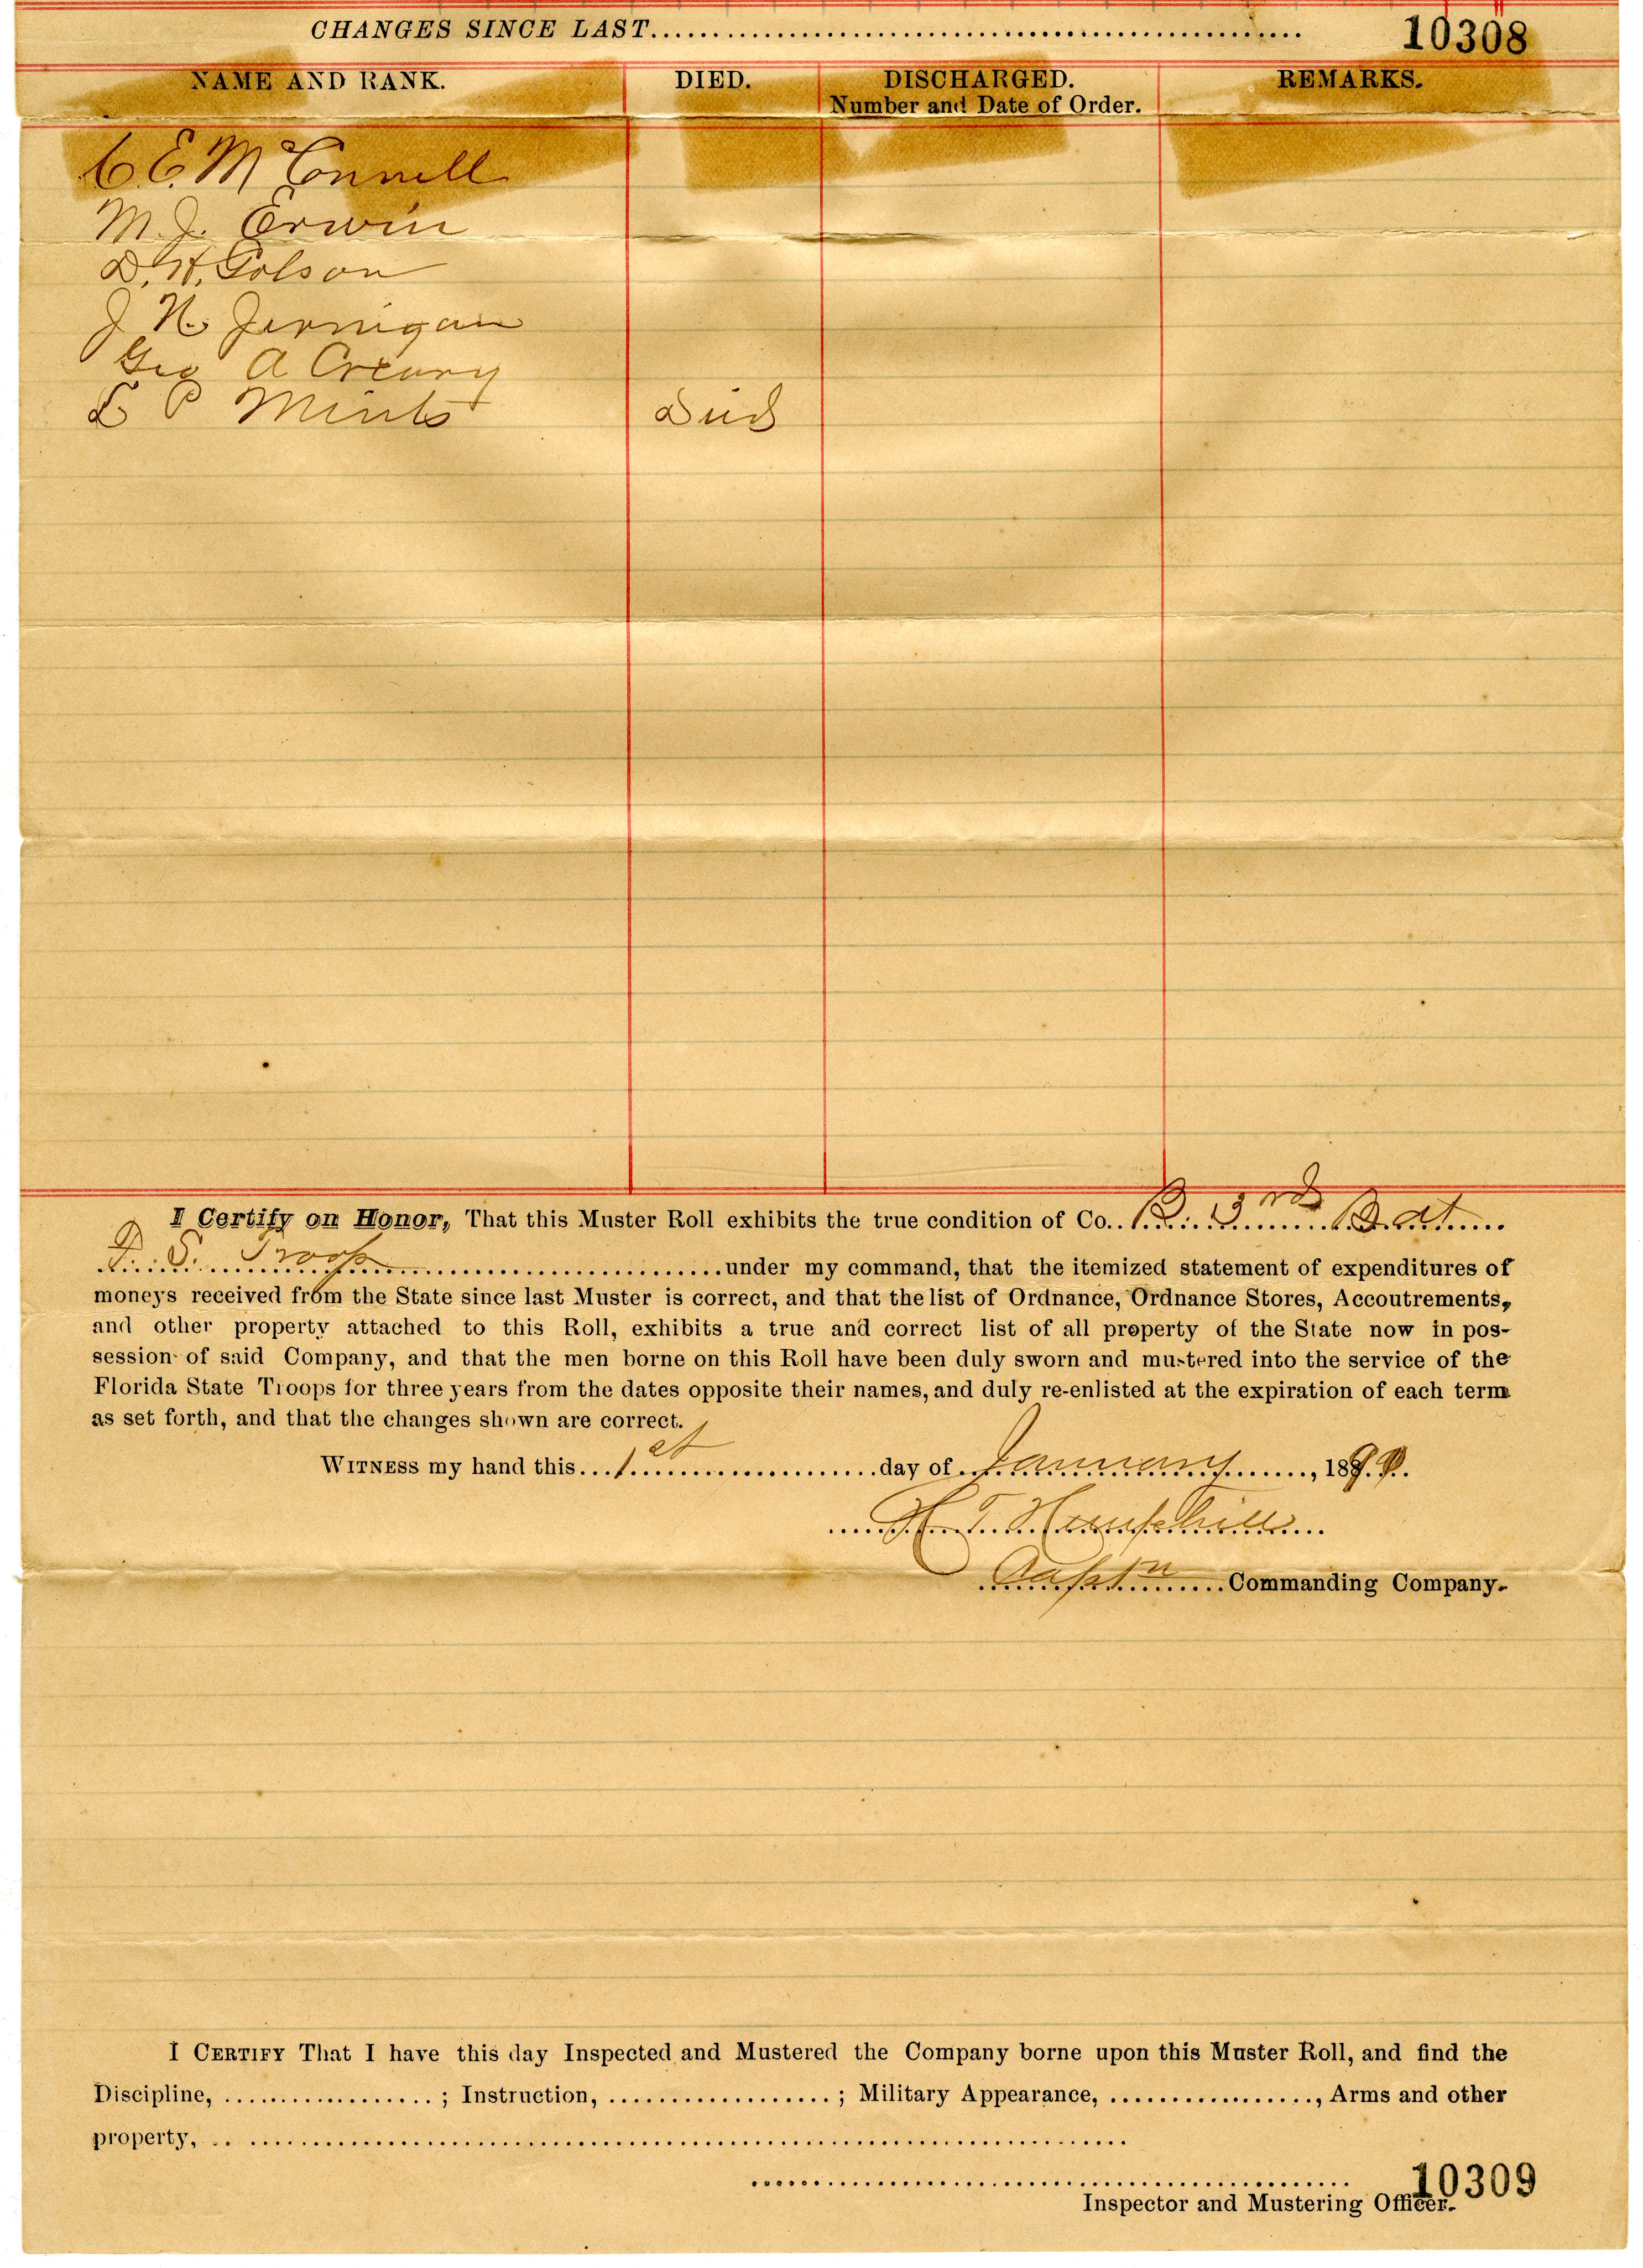 CHANGES SINCE LAST.................... 10308
NAME AND RANK. DIED. DISCHARGED. REMARKS.
Number and Date of Order.
C E. McConnell
M. J. Erwin
D. H. Golson
J N. Jernigan
Geo A Creary
L P Mints Died
I Certify on Honor, That this Muster Roll exhibits the true condition of Co. B. 3rd Bat
F. S. Troop under my command, that the itemized statement of expenditures of
moneys received from the State since last Muster is correct, and that the list of Ordnance, Ordnance Stores, Accoutrements,
and other property attached to this Roll, exhibits a true and correct list of all property of the State now in pos-
session of said Company, and that the men borne on this Roll have been duly sworn and mustered into the service of the
Florida State Troops for three years from the dates opposite their names, and duly re-enlisted at the expiration of each term
as set forth, and that the changes shown are correct.
WITNESS my hand this 1st day of January, 189
H T Hemphill
Capt'n Commanding Company.
I CERTIFY That I have this day Inspected and Mustered the Company borne upon this Muster Roll, and find the
Discipline, ................. ; Instruction, .................. ; Military Appearance, ................., Arms and other
property, ....................
10309
Inspector and Mustering Officer.